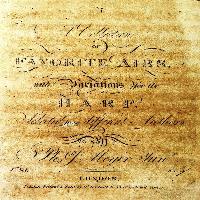 A
Collection
OF
FAVORITE AIRS,
with Variations for the
HARP
Selected from different Authors
BY
Ph. J. Meyer Junr
LONDON,